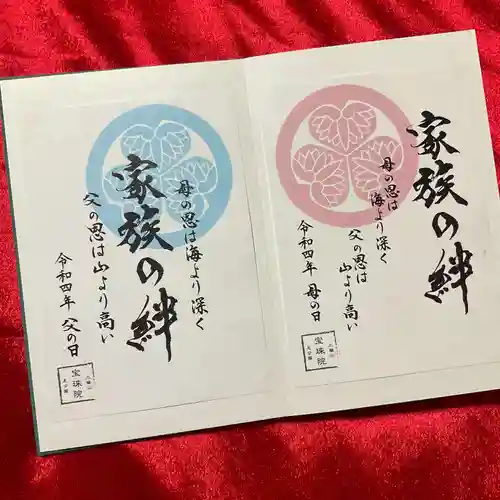 家族の絆
母の恩は
海より深く
父の恩は
山より高い
令和四年 母の日
宝珠院
母の恩は海より深く
家族の絆
父の恩は山より高い
令和四年 父の日
宝珠院